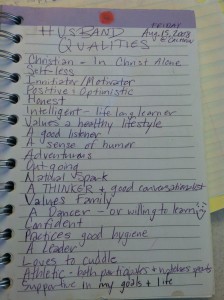 FRIDAY
Aug. 15, 2008
HUSBAND
QUALITIES
Christian - In Christ Alone
Self-less
Innitiator/Motivator
Positive + Optimistic
Honest
Intelligent - life long learner
Values a healthy lifestyle
A good listener
A sense of humor
Adventurous
Out-going
Natural Spark
A THINKER + good conversationalist
Values Family
A Dancer - or willing to learn
Confident
Practices good hygiene
A Leader
Loves to cuddle
Athletic - both participates + watches sports
Supportive in my goals + life